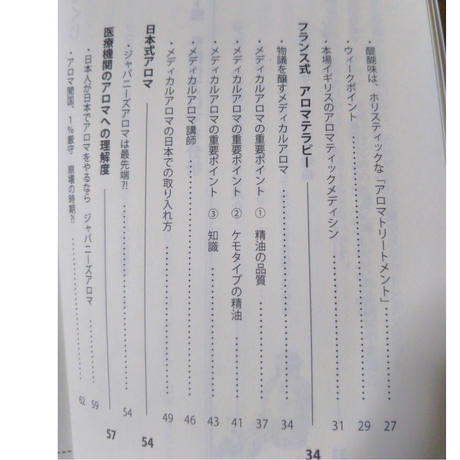 ・醍醐味は、ホリスティックな「アロマトリートメント」………… 27
・ウィークポイント………… 29
・本場イギリスのアロマティックメディシン………… 31
フランス式 アロマテラピー 34
・物議を醸すメディカルアロマ………… 34
・メディカルアロマの重要ポイント ① 精油の品質………… 37
・メディカルアロマの重要ポイント ② ケモタイプの精油………… 41
・メディカルアロマの重要ポイント ③ 知識………… 43
・メディカルアロマ講師………… 46
・メディカルアロマの日本での取り入れ方………… 49
日本式アロマ 54
・ジャパニーズアロマは最先端?!………… 54
医療機関のアロマへの理解度 57
・日本人が日本でアロマをやるなら ジャパニーズアロマ………… 59
・アロマ開国、1％厳守 崩壊の時期?!………… 62